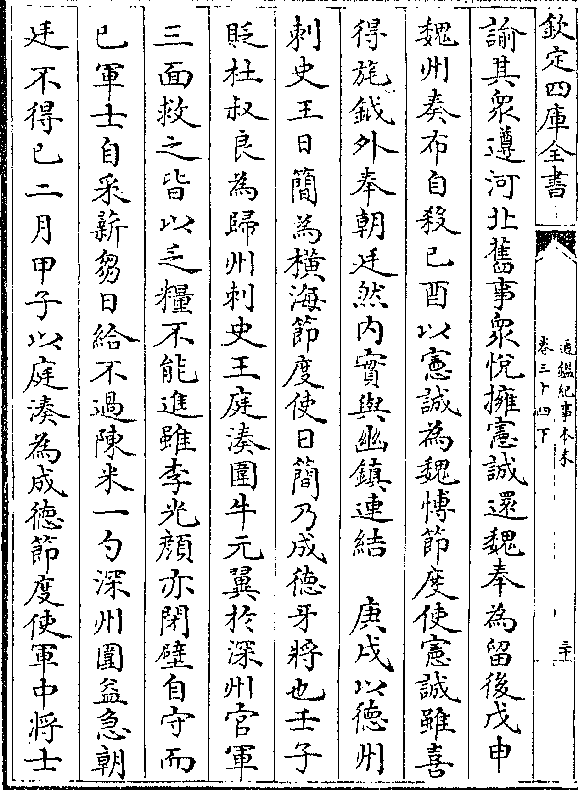 欽定四庫全書
通鑑紀事本末
卷三十四下
二十
諭其衆遵河北舊事衆悅擁憲誠還魏奉為留後戊申
魏州奏布自殺已酉以憲誠為魏博節度使憲誠雖喜
得旄鉞外奉朝廷然内實與幽鎮連結　庚戌以徳州
刺史王日簡為横海節度使日簡乃成徳牙將也壬子
貶杜叔良為歸州刺史王庭湊圍牛元翼於深州官軍
三面救之皆以乏糧不能進雖李光顔亦閉壁自守而
已軍士自采薪芻日給不過陳米一勺深州圍益急朝
廷不得已二月甲子以庭湊為成徳節度使軍中將士